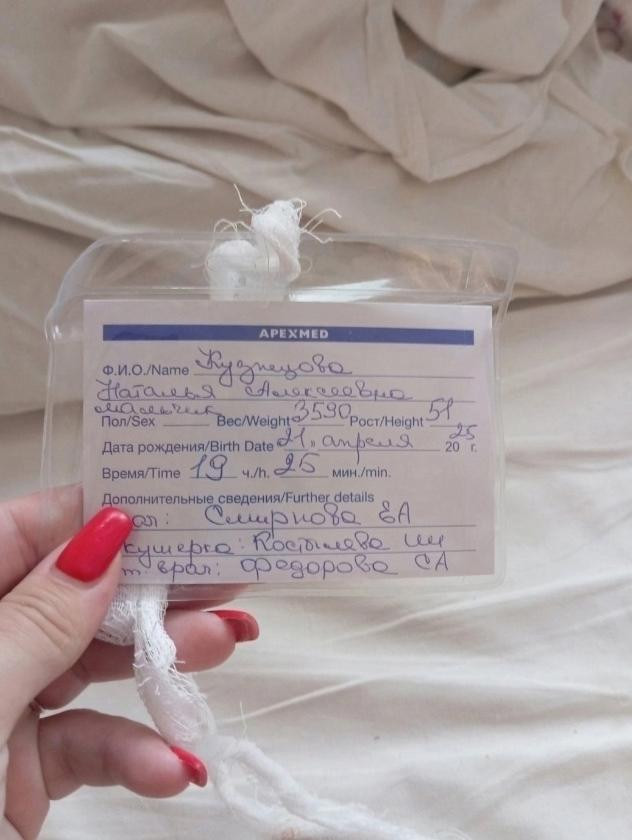 APEXMED
Ф.И.О./Name Кузнецова
Наталья Алексеевна
мальчик
Пол/Sex Вес/Weight 3590 Рост/Height 51
Дата рождения/Birth Date 21 апреля 2025 г.
Время/Time 19 ч./h. 25 мин./min.
Дополнительные сведения/Further details
Смирнова ЕА
кушерка: Костылева
т. врач: Федорова СА